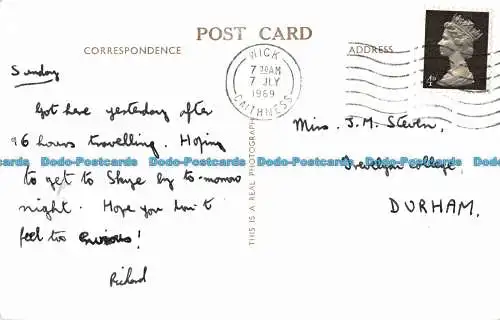 POST CARD
CORRESPONDENCE
ADDRESS
WICK
7 30AM
7 JLY
1969
CAITHNESS
4D
Sunday
Got here yesterday after
96 hours travelling. Hoping
to get to Skye by to-morrow
night. Hope you don't
feel too envious!
Richard
Miss. J.M. Steven,
Trevelyan College,
DURHAM.
THIS IS A REAL PHOTOGRAPH
Dodo-Postcards Dodo-Postcards Dodo-Postcards Dodo-Postcards